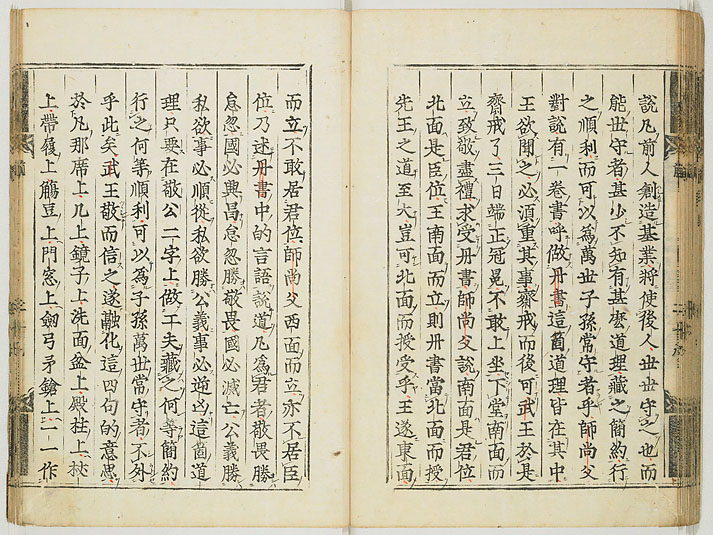 說凡前人創造基業將使後人世世守之也而
能世守者甚少不知有甚麽道理藏之簡約行
之順利而可以爲萬世子孫常守者乎師尚父
對說有一卷書呼做丹書這箇道理皆在其中
王欲聞之必須重其事齋戒而後可武王於是
齋戒了三日端正冠冕不敢上坐下堂南面而
立致敬盡禮求受丹書師尚父說南面是君位
北面是臣位王南面而立則丹書當北面而授
先王之道至大豈可北面而授受乎王遂東面
而立不敢居君位師尚父西面而立亦不居臣
位乃述丹書中的言語說道凡爲君者敬畏勝
怠忽國必興昌怠忽勝敬畏國必滅亡公義勝
私欲事必順從私欲勝公義事必逆凶這箇道
理只要在敬公二字上做工夫藏之何等簡約
行之何等順利可以爲子孫萬世常守者不外
乎此矣武王敬而信之遂融化這四句的意思
於凡那席上几上鏡子上洗面盆上殿柱上杖
上帶履上觴豆上門窓上劒弓矛鎗上一一作